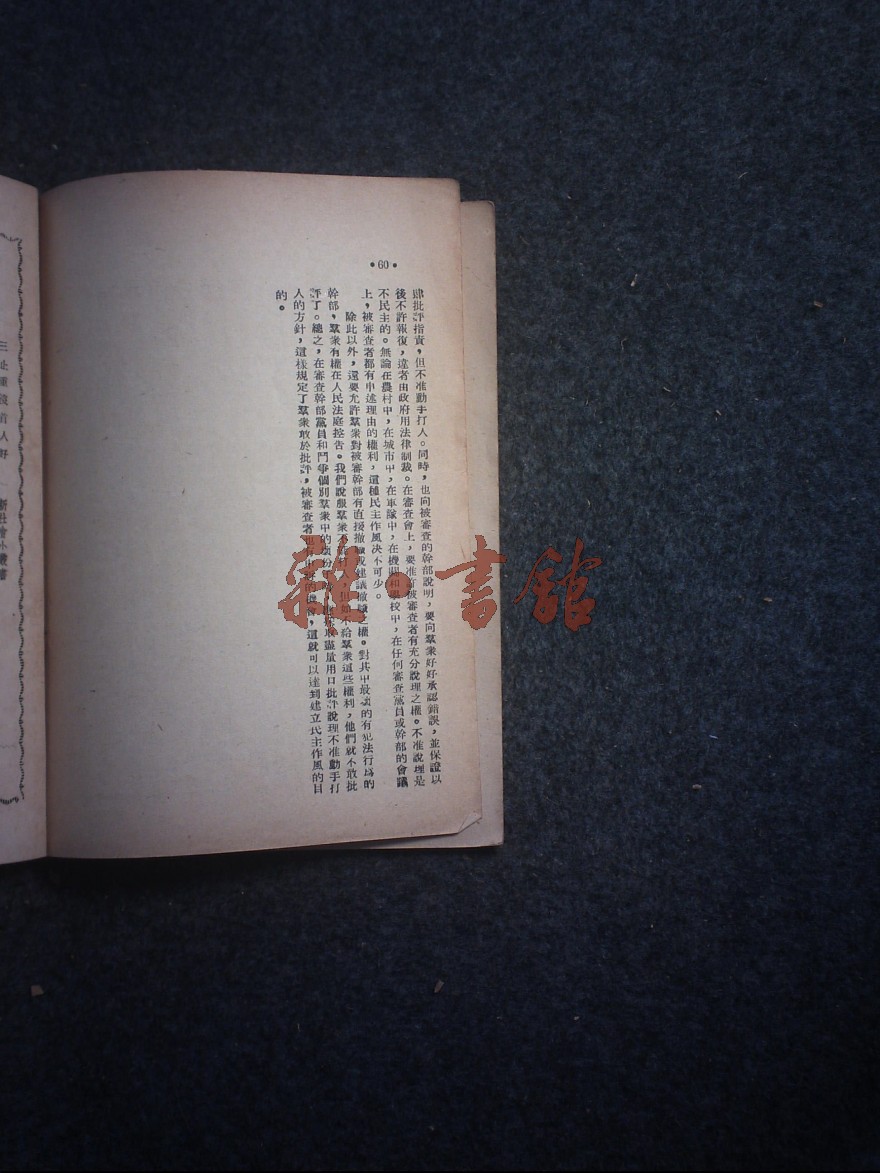 •60•
肆批評指責，但不准動手打人。同時，也向被審查的幹部說明，要向羣衆好好承認錯誤，並保證以
後不許報復，違者由政府用法律制裁。在審查會上，要准許被審查者有充分說理之權。不准說理是
不民主的。無論在農村中，在城市中，在軍隊中，在機關和學校中，在任何審查黨員或幹部的會議
上，被審查者都有申述理由的權利，這種民主作風决不可少。
除此以外，還要允許羣衆對被審幹部有直接撤職或建議撤職之權。對其中最壞的有犯法行爲的
幹部，羣衆有權在人民法庭控告。我們說服羣衆不打人，但如不給羣衆這些權利，他們就不敢批
評了。總之，在審查幹部黨員和鬥爭個別羣衆中的壞份子時，取盡量用口批評說理不准動手打
人的方針，這樣規定了羣衆敢於批評，被審查者也的機會，這就可以達到建立民主作風的目
的。
新社會小叢書
雜·書館